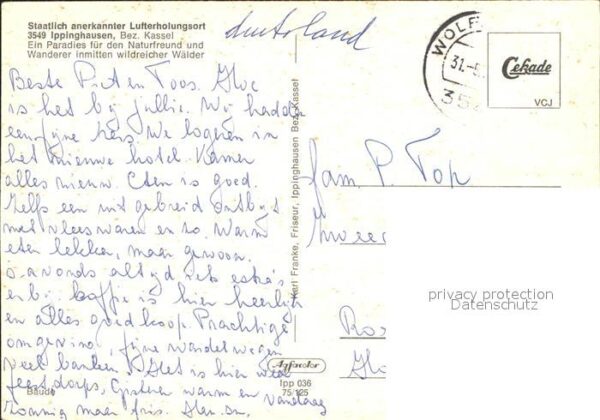 Staatlich anerkannter Lufterholungsort
3549 Ippinghausen, Bez. Kassel
Ein Paradies für den Naturfreund und
Wanderer inmitten wildreicher Wälder
deutsland
WOLF
31.-5.
35
Cekade
VCJ
Beste Piet en Toos. Hoe
is het bij jullie. Wij hadden
een fijne reis. We logeren in
het nieuwe hotel. Kamer
alles nieuw. Eten is goed.
Zelfs een uitgebreid ontbijt
met vleeswaren en zo. Warm
eten lekker, maar gewoon.
s'avonds altijd iets extra's
erbij. koffie is hier heerlijk
en alles goedkoop. Prachtige
omgeving, fijne wandelwegen
veel banken. Het is hier
feest dorps, Gisteren warm en vandaag
zonnig maar fris.
Karl Franke, Friseur, Ippinghausen Bez. Kassel
fam. P. Top
privacy protection
Datenschutz
Agfacolor
Ipp 036
75/125
Baude